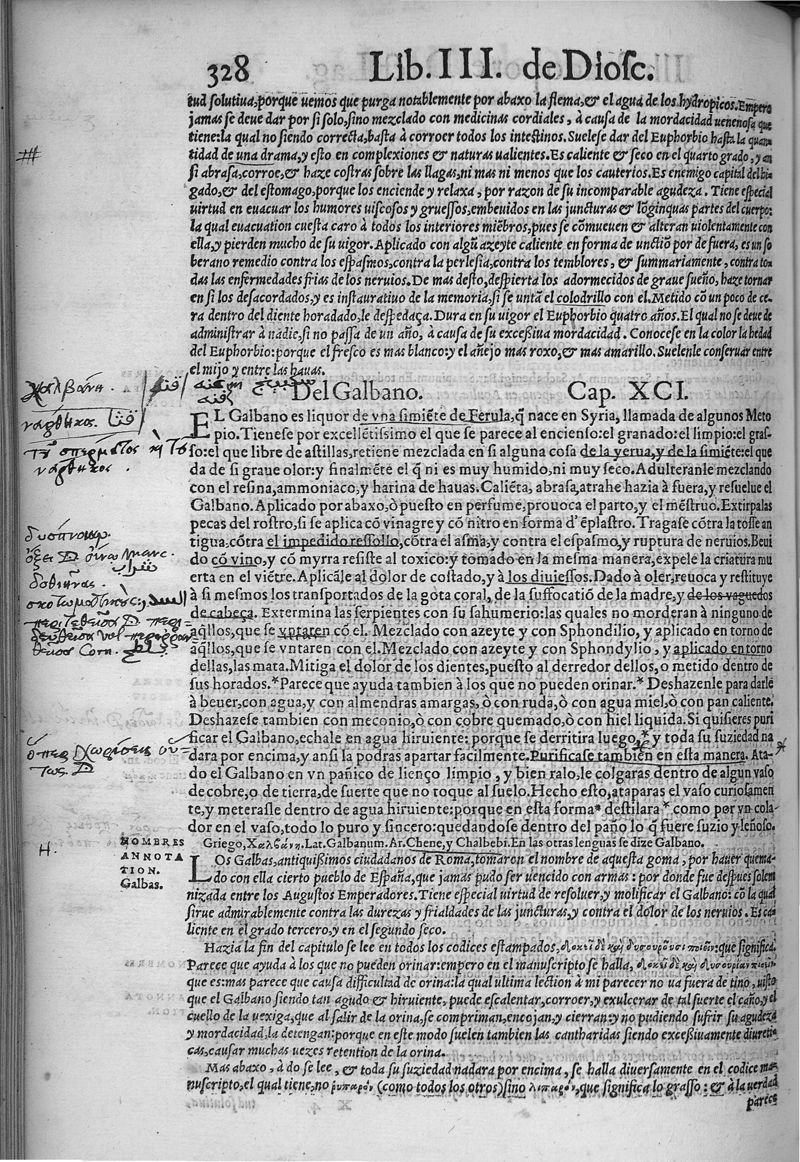 328
Lib. III. de Diosc.
tud solutiua, porque uemos que purga notablemente por abaxo la flema, & el agua de los hydropicos. Empero
jamas se deue dar por si solo, sino mezclado con medicinas cordiales, à causa de la mordacidad ueneñosa que
tiene: la qual no siendo correcta, basta à corroer todos los intestinos. Suelese dar del Euphorbio hasta la quan
tidad de una drama, y esto en complexiones & naturas ualientes. Es caliente & seco en el quarto grado, y an
si abrasa, corroe, & haze costras sobre las llagas, ni mas ni menos que los cauterios. Es enemigo capital del hi
gado, & del estomago, porque los enciende y relaxa, por razon de su incomparable agudeza. Tiene especial
uirtud en euacuar los humores uiscosos y gruessos, embeuidos en las juncturas & lõginquas partes del cuerpo:
la qual euacuation cuesta caro à todos los interiores miẽbros, pues se cõmueuen & alteran uiolentamente con
ella, y pierden mucho de su uigor. Aplicado con algũ azeyte caliente en forma de unctiõ por de fuera, es un so
berano remedio contra los espasmos, contra la perlesia, contra los temblores, & summariamente, contra to
das las enfermedades frias de los neruios. De mas desto, despierta los adormecidos de graue sueño, haze tornar
en si los desacordados, y es instauratiuo de la memoria, si se untã el colodrillo con el. Metido cõ un poco de ce
ra dentro del diente horadado, le despedaça. Dura en su uigor el Euphorbio quatro años. El qual no se deue de
administrar à nadie, si no passa de un año, à causa de su excessiua mordacidad. Conocese en la color la hedad
del Euphorbio: porque el fresco es mas blanco: y el añejo mas roxo, & mas amarillo. Suelenle conseruar entre
el mijo y entre las hauas.
χαλβάνη.
Del Galbano. Cap. XCI.
νάρθηκος.
EL Galbano es liquor de vna simiẽte de Ferula, q̃ nace en Syria, llamada de algunos Meto
pio. Tienese por excellẽtissimo el que se parece al encienso: el granado: el limpio: el gras-
so: el que libre de astillas, retiene mezclada en si alguna cosa de la yerua, y de la simiẽte: el que
νάρθηκος.
da de si graue olor: y finalmẽte el q̃ ni es muy humido, ni muy seco. Adulteranle mezclando
con el resina, ammoniaco, y harina de hauas. Caliẽta, abrasa, atrahe hazia à fuera, y resuelue el
Galbano. Aplicado por abaxo, ò puesto en perfume, prouoca el parto, y el mẽstruo. Extirpa las
pecas del rostro, si se aplica cõ vinagre y cõ nitro en forma d' ẽplastro. Tragase cõtra la tosse an
tigua: cõtra el impedido ressollo, cõtra el asma, y contra el espasmo, y ruptura de neruios. Beui
do cõ vino, y cõ myrra resiste al toxico: y tomado en la mesma manera, expele la criatura mu
erta en el viẽtre. Aplicãle al dolor de costado, y à los diuiessos. Dado à oler, reuoca y restituye
à si mesmos los transportados de la gota coral, de la suffocatiõ de la madre, y de los vaguedos
de cabeça. Extermina las serpientes con su sahumerio: las quales no morderan à ninguno de
aq̃llos, que se vntaren cõ el. Mezclado con azeyte y con Sphondilio, y aplicado en torno de
aq̃llos, que se vntaren con el. Mezclado con azeyte y con Sphondylio, y aplicado en torno
dellas, las mata. Mitiga el dolor de los dientes, puesto al derredor dellos, o metido dentro de
sus horados. * Parece que ayuda tambien à los que no pueden orinar. * Deshazenle para darle
à beuer, con agua, y con almendras amargas, ò con ruda, ò con agua miel, ò con pan caliente.
Deshazese tambien con meconio, ò con cobre quemado, ò con hiel liquida. Si quisieres puri
ficar el Galbano, echale en agua hiruiente: porque se derritira luego, * y toda su suziedad na
dara por encima, y ansi la podras apartar facilmente. Purificase tambien en esta manera. Ata-
do el Galbano en vn pañico de lienço limpio, y bien ralo, le colgaras dentro de algun vaso
de cobre, o de tierra, de suerte que no toque al suelo. Hecho esto, ataparas el vaso curiosamen
te, y meterasle dentro de agua hiruiente: porque en esta forma * destilara * como por vn cola-
dor en el vaso, todo lo puro y sincero: quedandose dentro del paño lo q̃ fuere suzio y leñoso.
H.
NOMBRES
Griego, Χαλβάνη. Lat. Galbanum. Ar. Chene, y Chalbebi. En las otras lenguas se dize Galbano.
ANNOTA
TION.
Galbas.
LOs Galbas, antiquißimos ciudadanos de Roma, tomaron el nombre de aquesta goma, por hauer quema-
do con ella cierto pueblo de España, que jamas pudo ser uencido con armas: por donde fue despues solem
nizada entre los Augustos Emperadores. Tiene especial uirtud de resoluer, y molificar el Galbano: cõ la qual
sirue admirablemente contra las durezas y frialdades de las juncturas, y contra el dolor de los neruios. Es ca
liente en el grado tercero, y en el segundo seco.
Hazia la fin del capitulo se lee en todos los codices estampados, δοκεῖ δὲ καὶ δυσουροῦσι ποιεῖν: que significa,
Parece que ayuda à los que no pueden orinar: empero en el manuscripto se halla, δοκεῖ δὲ καὶ δυσουρίαν ποιεῖν
que es: mas parece que causa difficultad de orina: la qual ultima lection à mi parecer no ua fuera de tino, uisto
que el Galbano siendo tan agudo & hiruiente, puede escalentar, corroer, y exulcerar de tal suerte el caño, y el
cuello de la uexiga, que al salir de la orina, se compriman, encojan, y cierran: y no pudiendo sufrir su agudeza
y mordacidad, la detengan: porque en este modo suelen tambien las cantharidas siendo excessiuamente diureti
cas, causar muchas uezes retention de la orina.
Mas abaxo, à do se lee, & toda su suziedad nadara por encima, se halla diuersamente en el codice ma
nuscripto, el qual tiene, no ῥυπαρόν (como todos los otros) sino λιπαρόν, que significa lo grasso: & à la uerdad
parece